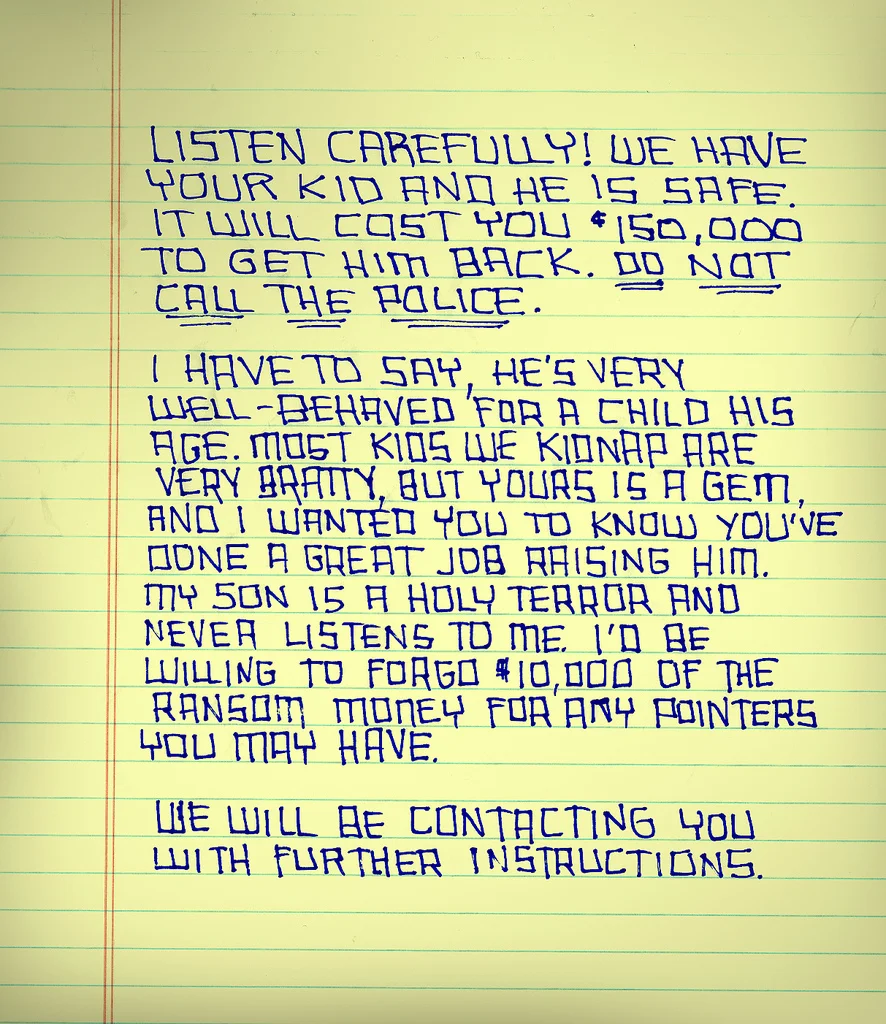 LISTEN CAREFULLY! WE HAVE
YOUR KID AND HE IS SAFE.
IT WILL COST YOU $150,000
TO GET HIM BACK. DO NOT
CALL THE POLICE.
I HAVE TO SAY, HE'S VERY
WELL-BEHAVED FOR A CHILD HIS
AGE. MOST KIDS WE KIDNAP ARE
VERY BRATTY, BUT YOURS IS A GEM,
AND I WANTED YOU TO KNOW YOU'VE
DONE A GREAT JOB RAISING HIM.
MY SON IS A HOLY TERROR AND
NEVER LISTENS TO ME. I'D BE
WILLING TO FORGO $10,000 OF THE
RANSOM MONEY FOR ANY POINTERS
YOU MAY HAVE.
WE WILL BE CONTACTING YOU
WITH FURTHER INSTRUCTIONS.